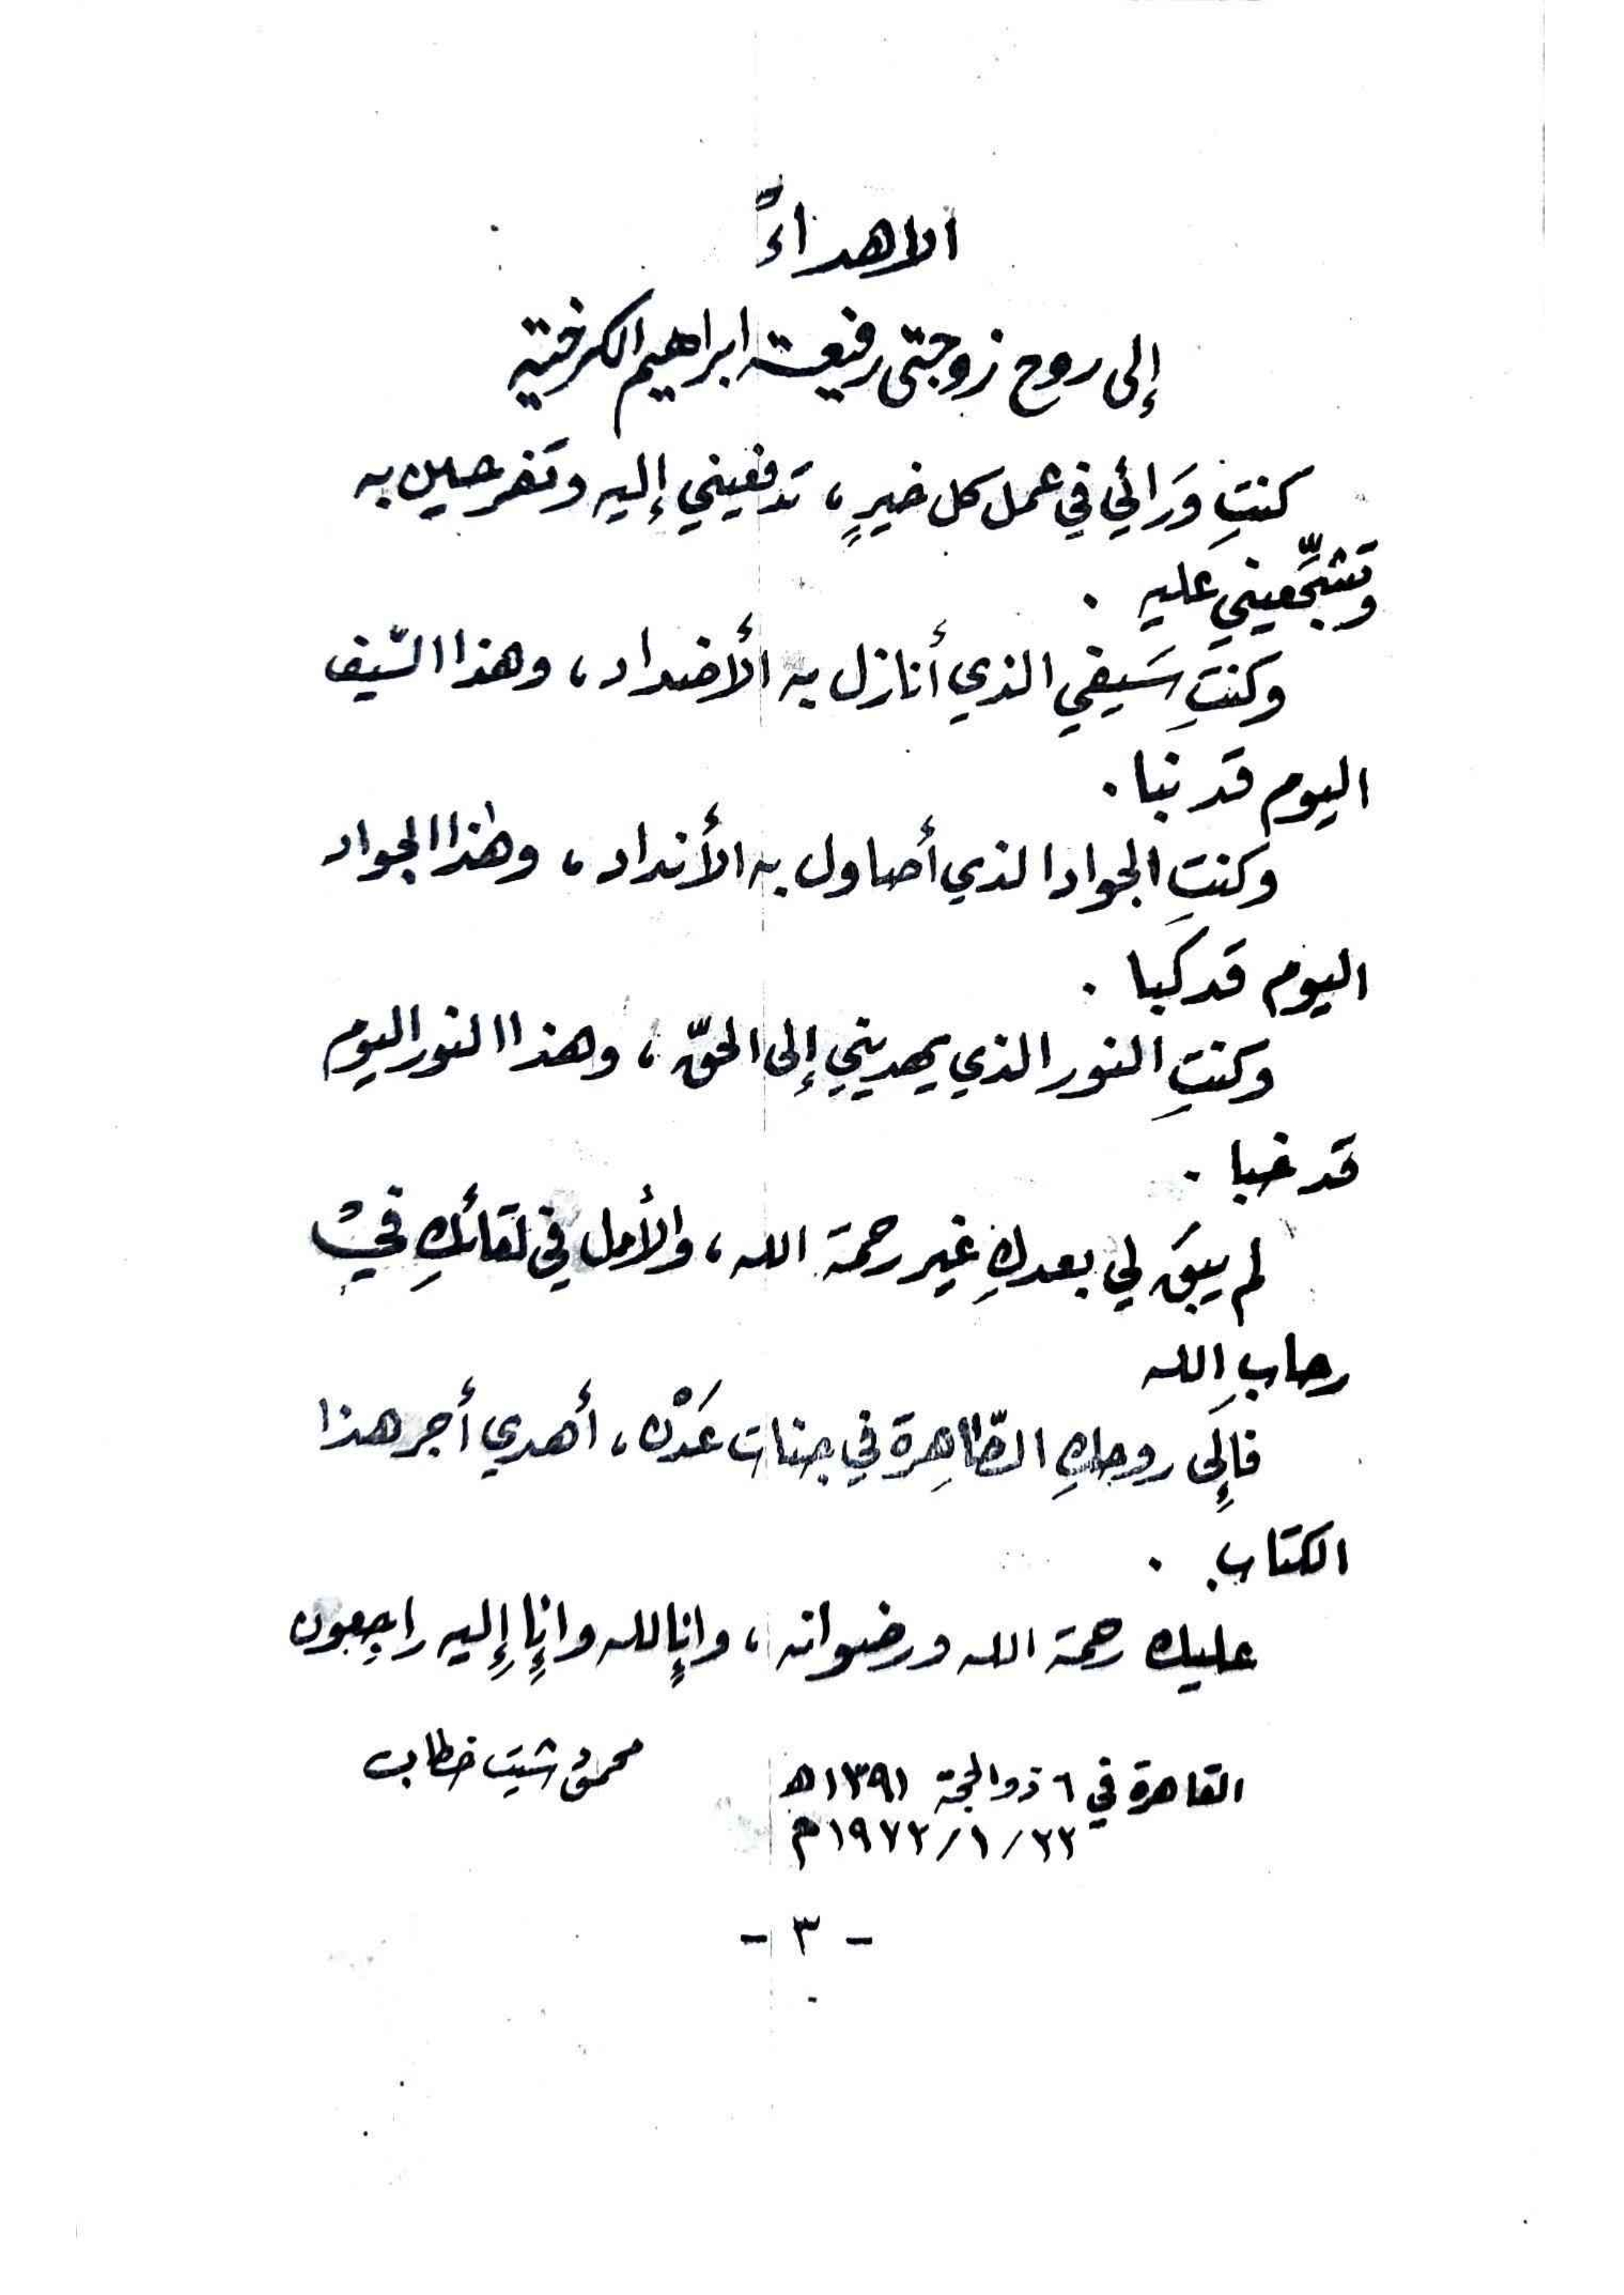 الاهداءً
إلى روح زوجتي رفيعة ابراهيم الكرخية
كنتِ وَرائي في عمل كل خيرٍ، تَدفعيني إليه وتَفرحين به
وتَشجِّعيني عليه .
وكنتِ سَيفي الذي أنازل به الأضداد، وهذا السّيف
اليوم قد نبا.
وكنتِ الجواد الذي أصاول به الأنداد، وهذا الجواد
اليوم قد كَبا .
وكنتِ النور الذي يهديني إلى الحقّ، وهذا النور اليوم
قد خبا .
لم يبقَ لي بعدكِ غير رحمة الله، والأمل في لقائكِ في
رحابِ الله
فإلَى روحكِ الطّاهِرة في جنات عَدْن، أهدي أجر هذا
الكتاب .
عليك رحمة الله ورضوانه، وإنا لله وإنا إليه راجِعون
محمود شيت خطاب
القاهرة في ٦ ذو الحجة ١٣٩١هـ
٢٢/١/١٩٧٢م
- ٣ -